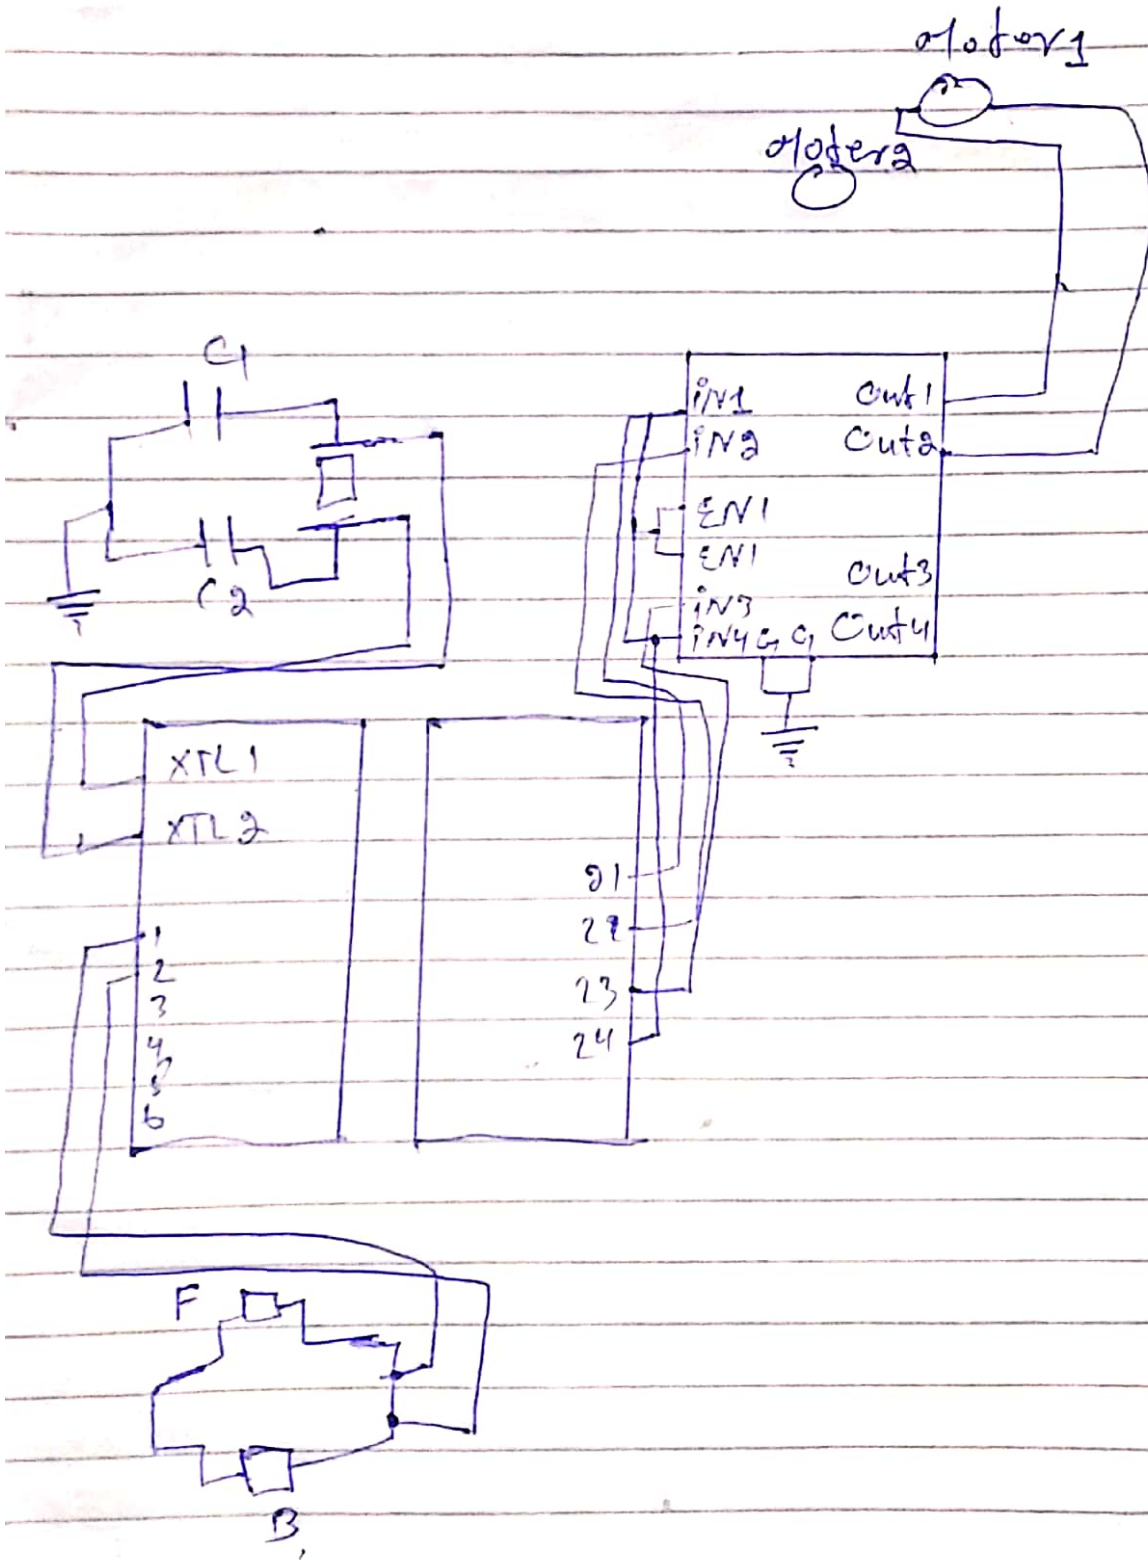 Moter1
Moter2
C1
C2
IN1
IN2
EN1
EN1
IN3
IN4 G G
Out1
Out2
Out3
Out4
XTL1
XTL2
1
2
3
4
5
6
21
22
23
24
F
B